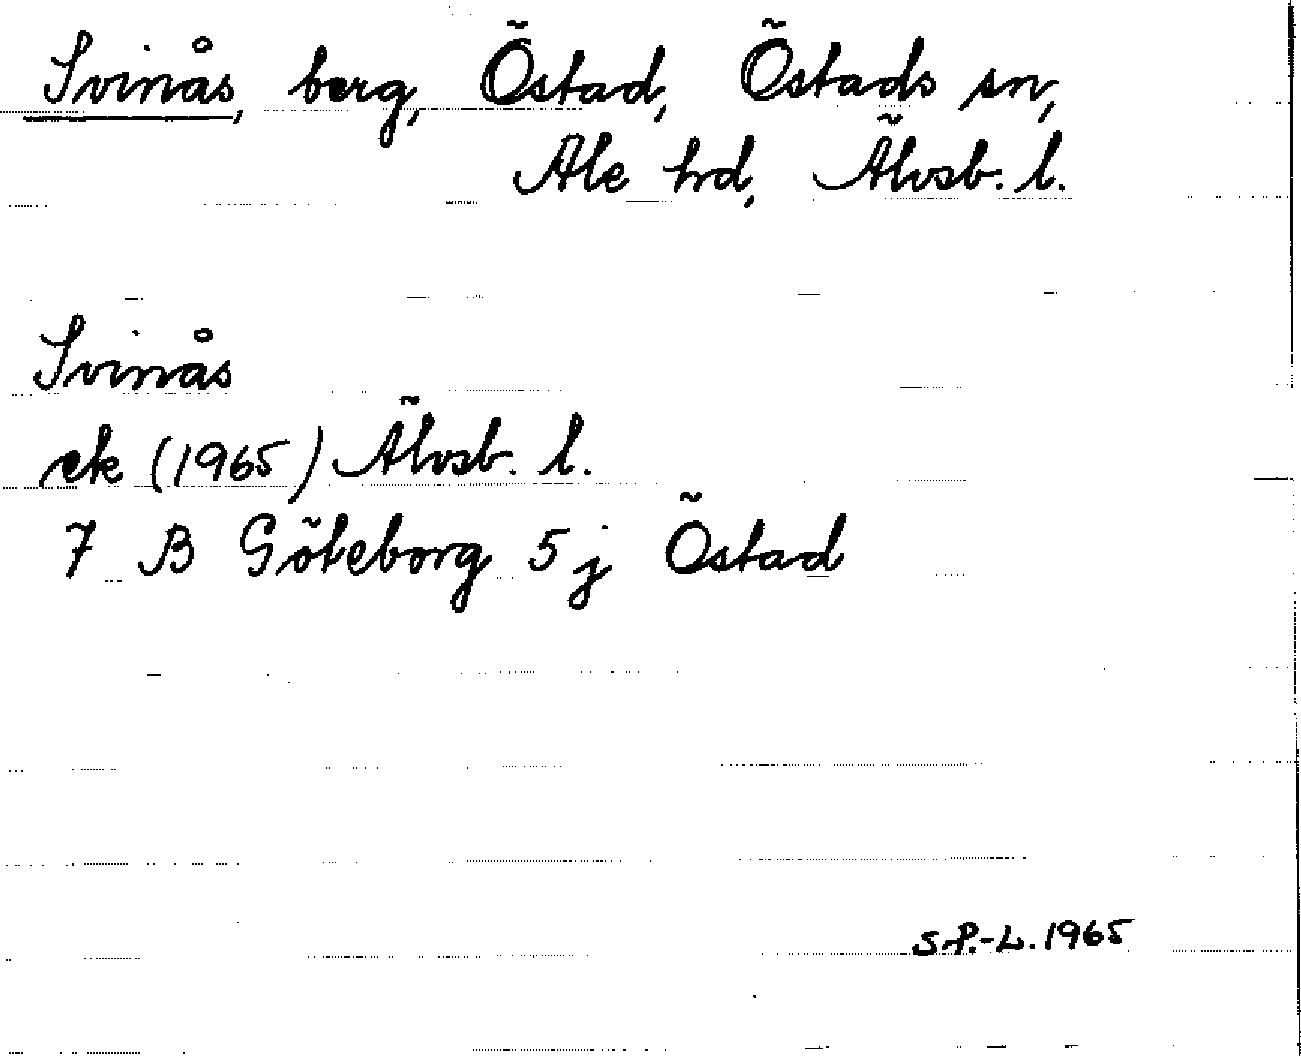 Svinås, berg, Östad, Östads sn,
Ale hrd, Älvsb. l.
Svinås
ek (1965) Älvsb. l.
7 B Göteborg 5 j Östad
S.P.-L. 1965